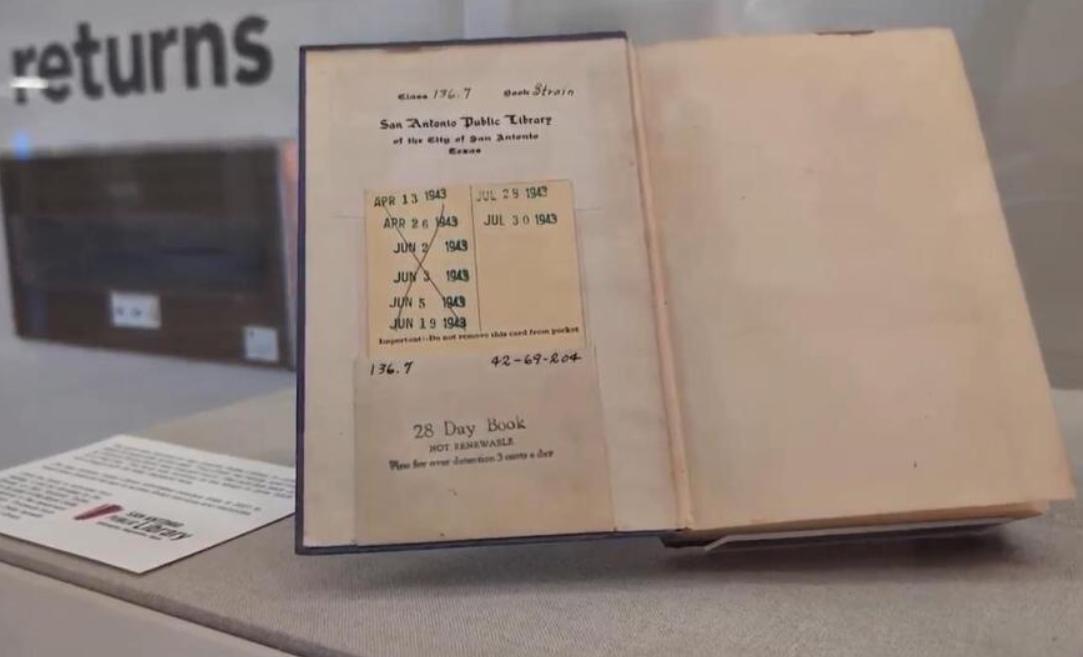 returns
Class 136.7 Book Strain
San Antonio Public Library
of the City of San Antonio
Texas
APR 13 1943 JUL 28 1943
APR 26 1943 JUL 30 1943
JUN 2 1943
JUN 3 1943
JUN 5 1943
JUN 19 1943
Important:-Do not remove this card from pocket
136.7 42-69-204
28 Day Book
NOT RENEWABLE
Fine for over detention 3 cents a day
SAN ANTONIO
PUBLIC Library